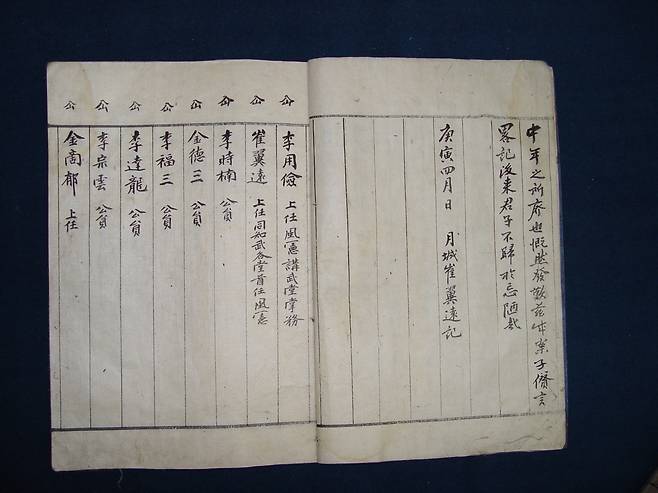 中年之所 也慨然發歎茲 案子 言
畧記後來君子不歸於忘陋哉
庚寅四月日 月城崔翼遠記
李用儉 上任風憲講武堂掌務
崔翼遠 上任同知武各堂首任風憲
李時楠 公員
金德三 公員
李福三 公員
李達龍 公員
李宗雲 公員
金商郁 上任